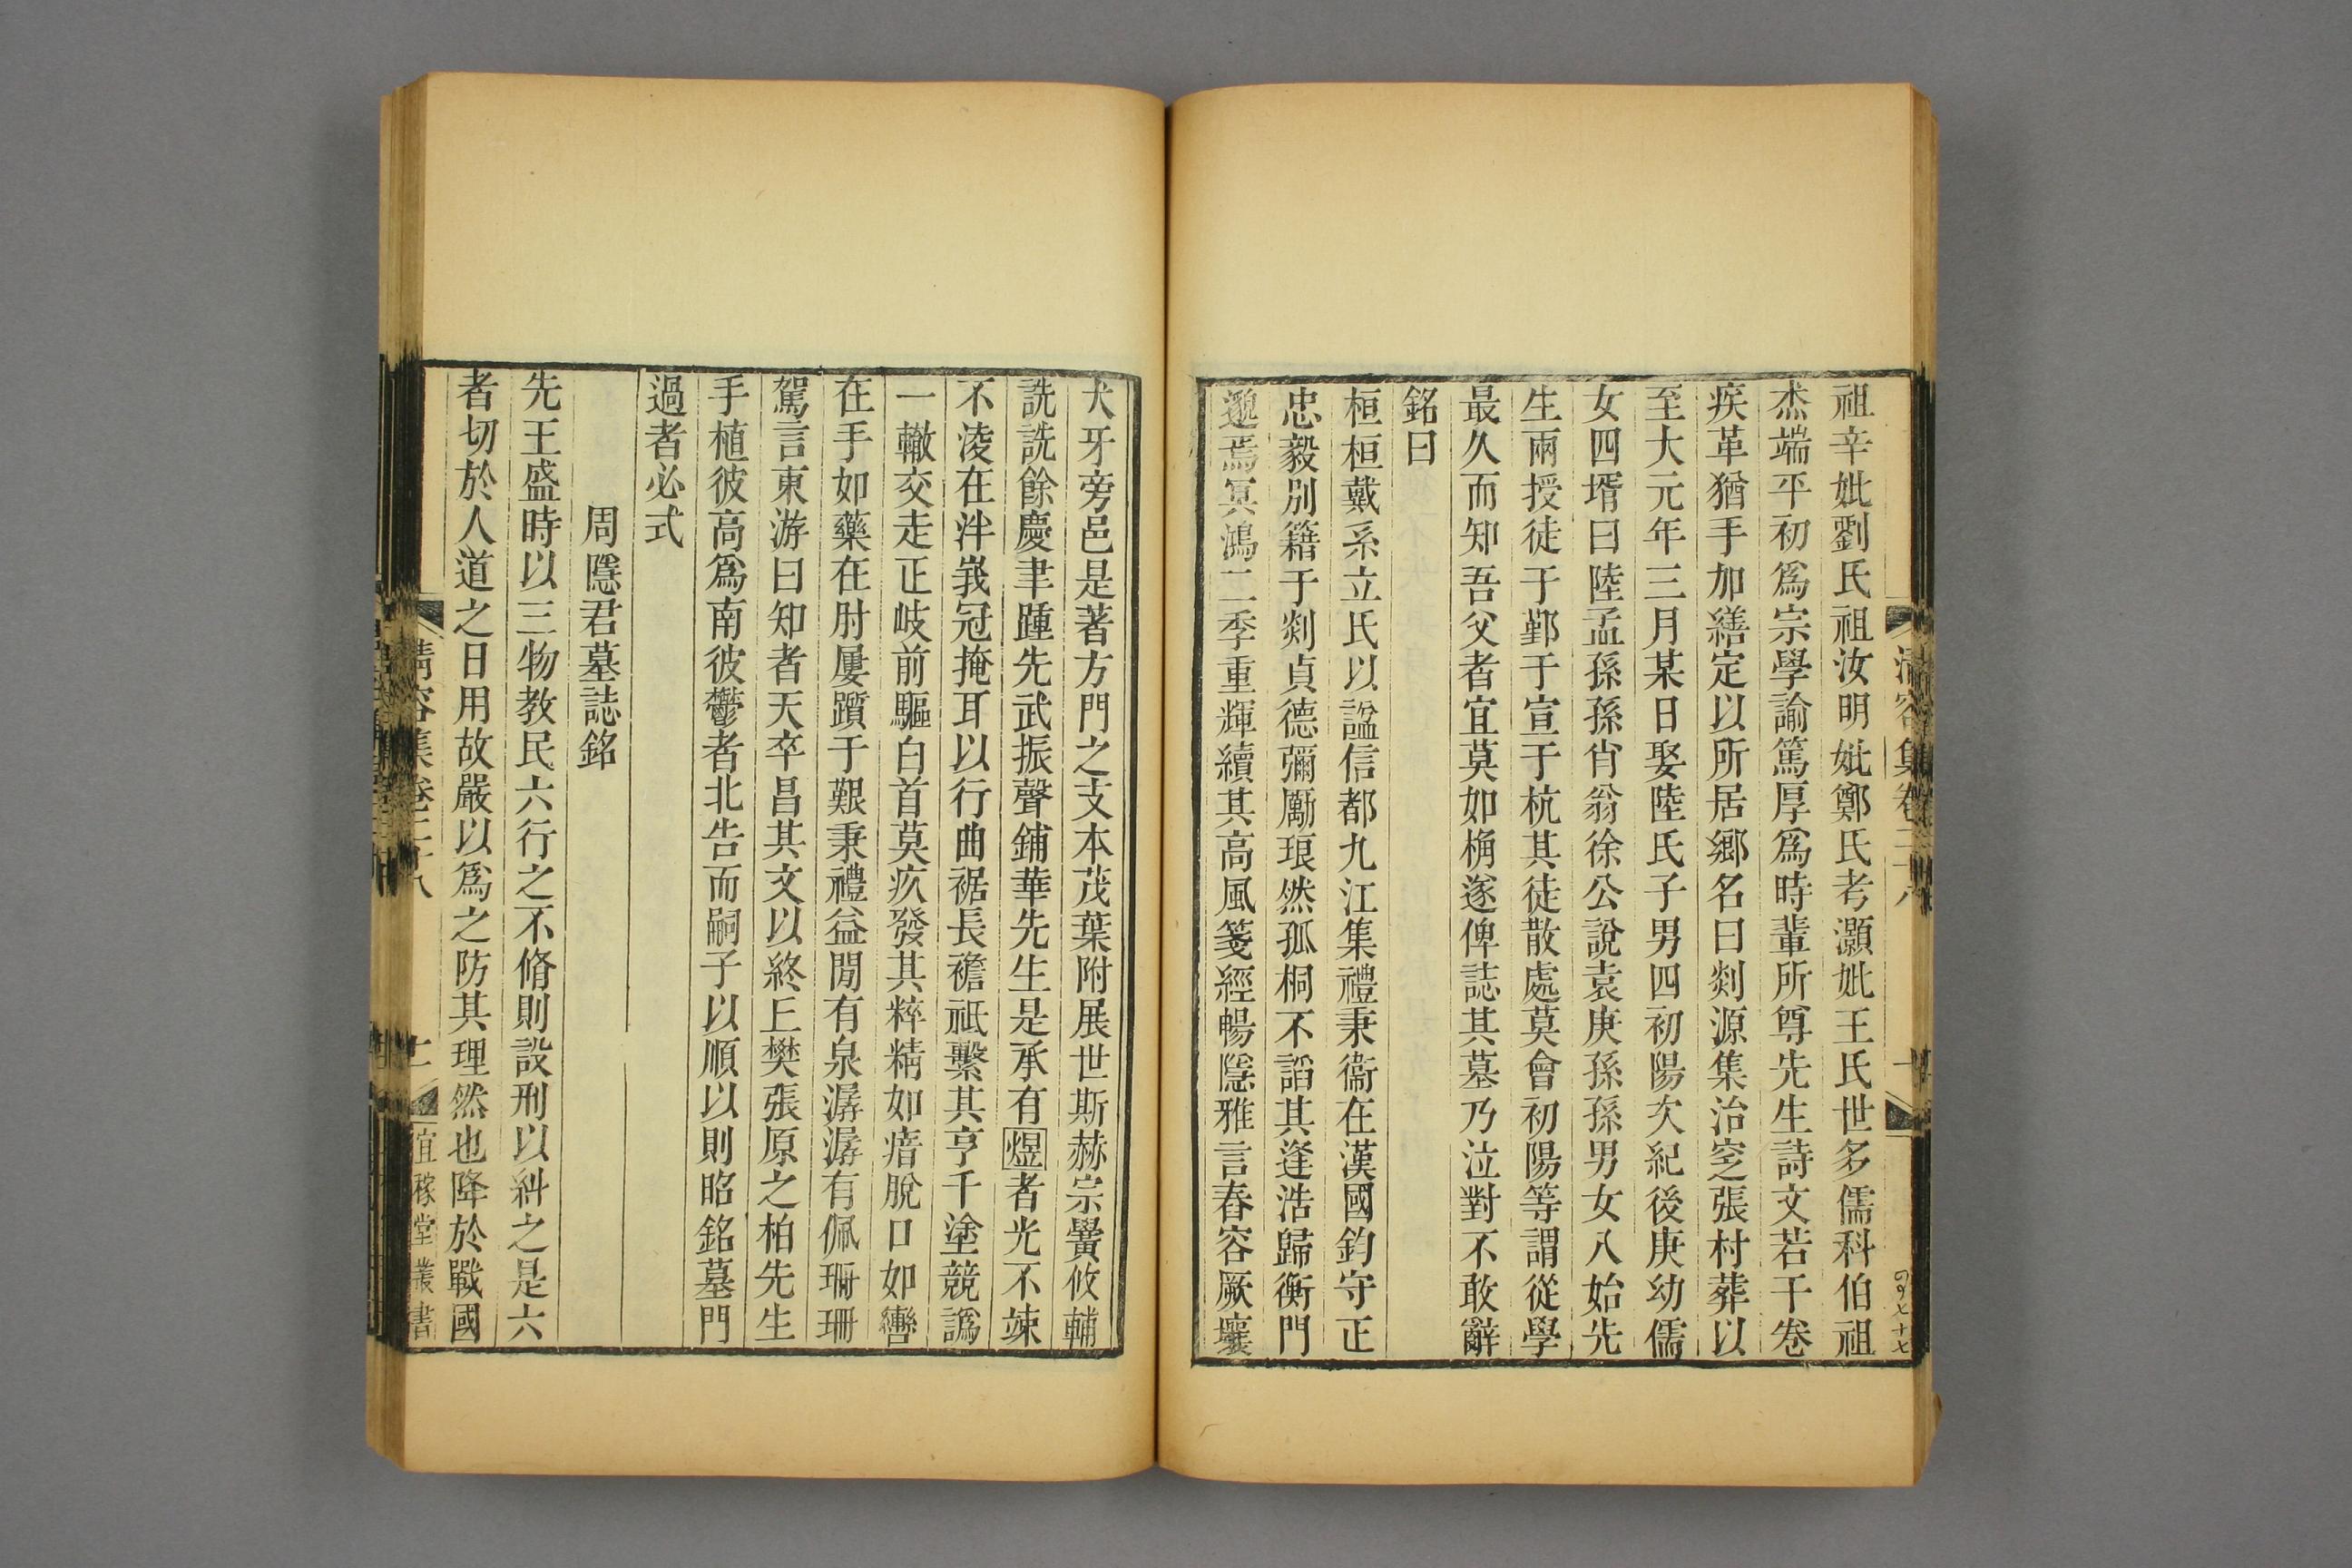 祖辛妣劉氏祖汝明妣鄭氏考灝妣王氏世多儒科伯祖
杰端平初爲宗學諭篤厚爲時輩所尊先生詩文若干卷
疾革猶手加繕定以所居鄉名曰剡源集治窆張村葬以
至大元年三月某日娶陸氏子男四初陽次紀後庚幼儒
女四壻曰陸孟孫孫肖翁徐公說袁庚孫孫男女八始先
生兩授徒于鄞于宣于杭其徒散處莫會初陽等謂從學
最久而知吾父者宜莫如桷遂俾誌其墓乃泣對不敢辭
銘曰
桓桓戴系立氏以諡信都九江集禮秉衞在漢國鈞守正
忠毅別籍于剡貞德彌勵琅然孤桐不謟其逢浩歸衡門
邈焉冥鴻二季重輝續其高風箋經暢隱雅言舂容厥壤
犬牙旁邑是著方門之支本茂葉附展世斯赫宗黌攸輔
詵詵餘慶聿踵先武振聲鋪華先生是承有煜者光不竦
不淩在泮峩冠掩耳以行曲裾長襜祗繫其亨千塗競譌
一轍交走正岐前驅白首莫疚發其粹精如瘖脫口如轡
在手如藥在肘屢躓于艱秉禮益閒有泉潺潺有佩珊珊
駕言東游曰知者天卒昌其文以終丘樊張原之柏先生
手植彼高爲南彼鬱者北告而嗣子以順以則昭銘墓門
過者必式
周隱君墓誌銘
先王盛時以三物教民六行之不脩則設刑以糾之是六
者切於人道之日用故嚴以爲之防其理然也降於戰國
清容集卷二十八
十一
宜稼堂叢書